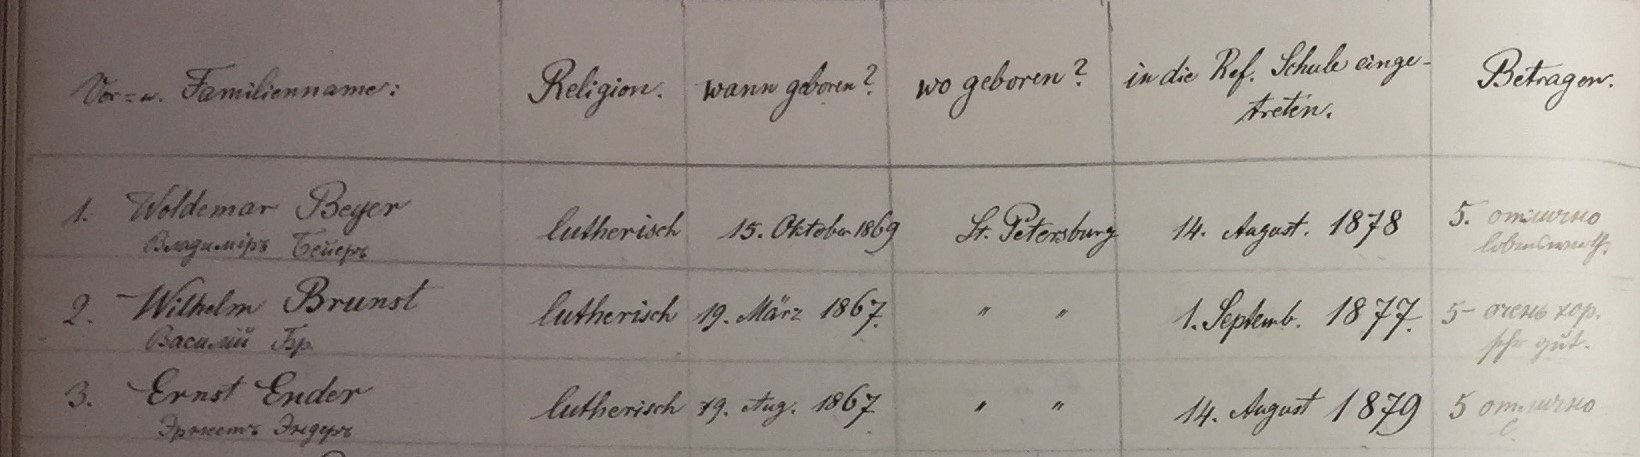 Vor= u. Familienname: Religion. wann geboren? wo geboren? in die Ref. Schule einge-
treten. Betragen.
1. Woldemar Beyer lutherisch 15. Oktober 1869 St. Petersburg 14. August. 1878 5. отлично
Владиміръ Бейеръ lobenswerth.
2. Wilhelm Brunst lutherisch 19. März 1867. " " 1. Septemb. 1877. 5- очень хор.
Василій Бр. sehr gut.
3. Ernst Ender lutherisch 19. Aug. 1867. " " 14. August 1879 5 отлично
Эрнестъ Эндеръ